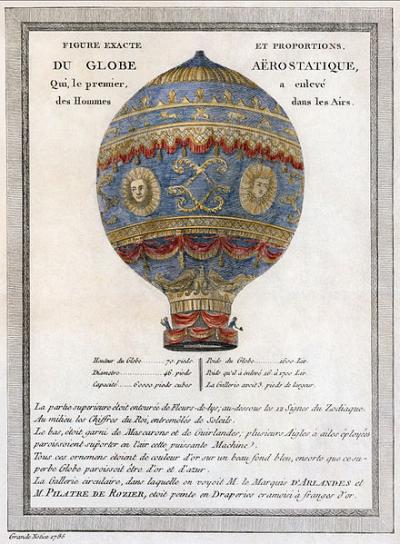 FIGURE EXACTE ET PROPORTIONS,
DU GLOBE AËROSTATIQUE,
Qui, le premier, a enlevé
des Hommes dans les Airs.
Hauteur du Globe 70 pieds Poids du Globe 1600 Liv.
Diametre 46 pieds Poids qu'il a enlevé 16 à 1700 Liv.
Capacité 60000 pieds cubes La Gallerie avoit 3 pieds de largeur.
La partie superieure étoit entourée de Fleurs-de-lys, au-dessous les 12 Signes du Zodiaque.
Au milieu les Chiffres du Roi, entremêlés de Soleils.
Le bas, étoit garni de Mascarons et de Guirlandes; plusieurs Aigles à ailes éployées
paroissoient suporter en l'air cette puissante Machine.
Tous ces ornemens étoient de couleur d'or sur un beau fond bleu, ensorte que ce su-
perbe Globe paroissoit être d'or et d'azur.
La Gallerie circulaire, dans laquelle on voyoit M. le Marquis D'ARLANDES et
M. PILATRE DE ROZIER, étoit peinte en Draperies cramoisi à franges d'or.
1786